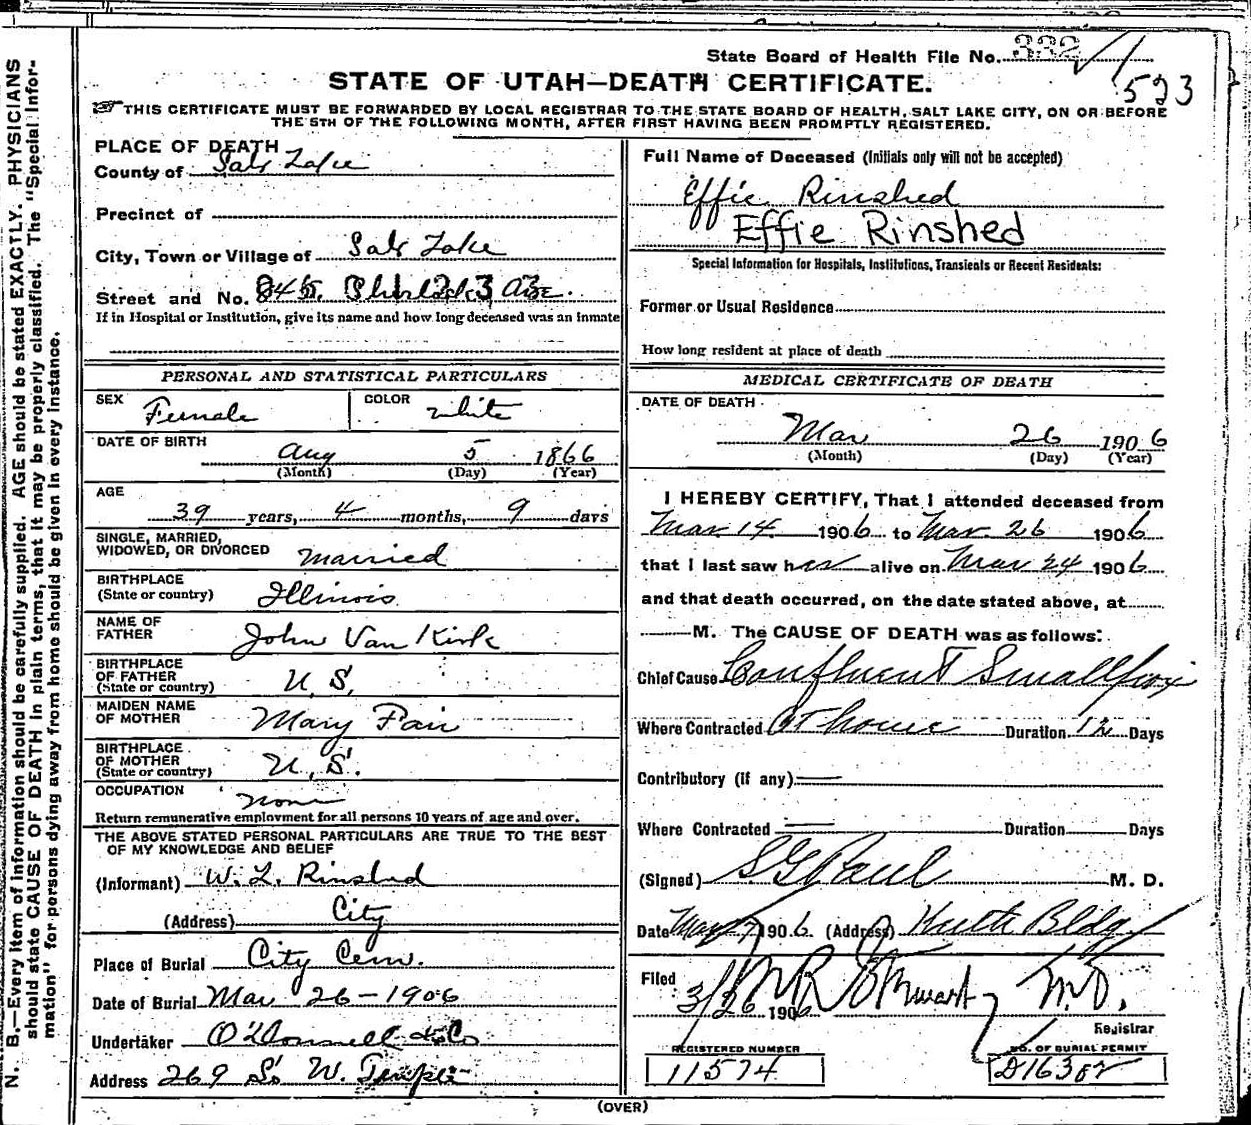 State Board of Health File No. 332
523
STATE OF UTAH—DEATH CERTIFICATE.
THIS CERTIFICATE MUST BE FORWARDED BY LOCAL REGISTRAR TO THE STATE BOARD OF HEALTH, SALT LAKE CITY, ON OR BEFORE
THE 5TH OF THE FOLLOWING MONTH, AFTER FIRST HAVING BEEN PROMPTLY REGISTERED.
PLACE OF DEATH
County of Salt Lake
Precinct of
City, Town or Village of Salt Lake
Street and No.
If in Hospital or Institution, give its name and how long deceased was an inmate
PERSONAL AND STATISTICAL PARTICULARS
SEX Female COLOR white
DATE OF BIRTH Aug 5 1866
(Month) (Day) (Year)
AGE
39 years, 4 months, 9 days
SINGLE, MARRIED,
WIDOWED, OR DIVORCED Married
BIRTHPLACE
(State or country) Illinois
NAME OF
FATHER John Van Kirk
BIRTHPLACE
OF FATHER
(State or country) U.S.
MAIDEN NAME
OF MOTHER Mary Fair
BIRTHPLACE
OF MOTHER
(State or country) U.S.
OCCUPATION None
Return remunerative employment for all persons 10 years of age and over.
THE ABOVE STATED PERSONAL PARTICULARS ARE TRUE TO THE BEST
OF MY KNOWLEDGE AND BELIEF
(Informant) W. L. Rinshed
(Address) City
Place of Burial City Cem.
Date of Burial Mar 26-1906
Undertaker O'Donnell & Co
Address 269 So W. Temple
Full Name of Deceased (Initials only will not be accepted)
Effie Rinshed
Effie Rinshed
Special Information for Hospitals, Institutions, Transients or Recent Residents:
Former or Usual Residence
How long resident at place of death
MEDICAL CERTIFICATE OF DEATH
DATE OF DEATH
Mar 26 1906
(Month) (Day) (Year)
I HEREBY CERTIFY, That I attended deceased from
Mar. 14 1906 to Mar. 26 1906
that I last saw her alive on Mar 24 1906
and that death occurred, on the date stated above, at
M. The CAUSE OF DEATH was as follows:
Chief Cause Confluent Smallpox
Where Contracted At home Duration 12 Days
Contributory (if any)
Where Contracted Duration Days
(Signed) S G Paul M. D.
Date Mar 1906 (Address) Bldg
Filed
3/26 1906 M.D.
Registrar
REGISTERED NUMBER
11574
NO. OF BURIAL PERMIT
D16382
(OVER)
N. B.—Every item of information should be carefully supplied. AGE should be stated EXACTLY. PHYSICIANS
should state CAUSE OF DEATH in plain terms, that it may be properly classified. The "Special Infor-
mation" for persons dying away from home should be given in every instance.